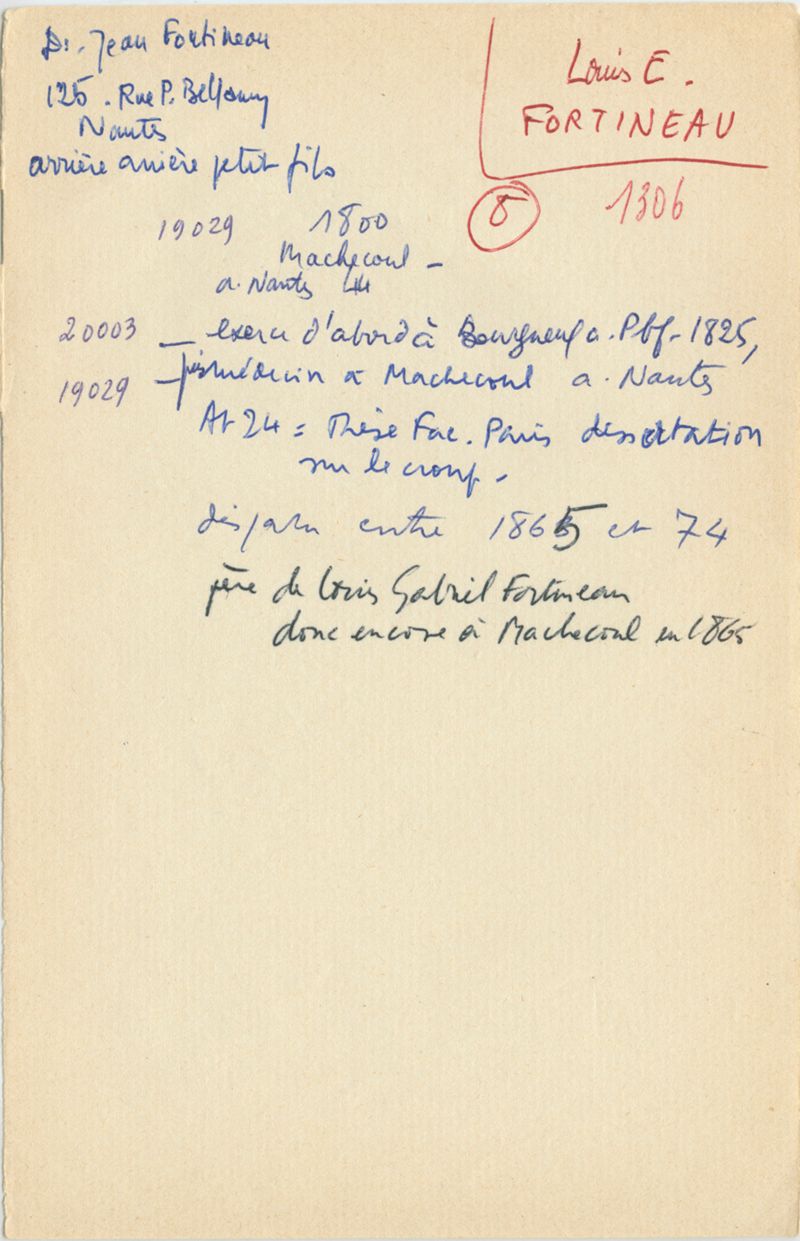 Dr. Jean Fortineau
125. Rue P. Bellamy
Nantes
arrière arrière petit fils
Louis E.
FORTINEAU
8 1306
19029 1800
Machecoul -
a. Nantes 44
20003 - exerce d'abord à Bourgneuf a. Pbf - 1825,
19029 - puis médecin à Machecoul a. Nantes
At 24 = Thèse Fac. Paris dissertation
sur le croup -
disparu entre 1865 et 74
père de Louis Gabriel Fortineau
donc encore à Machecoul en 1865